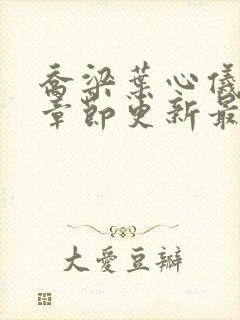 乔梁叶心仪
章节更新最
大爱豆瓣